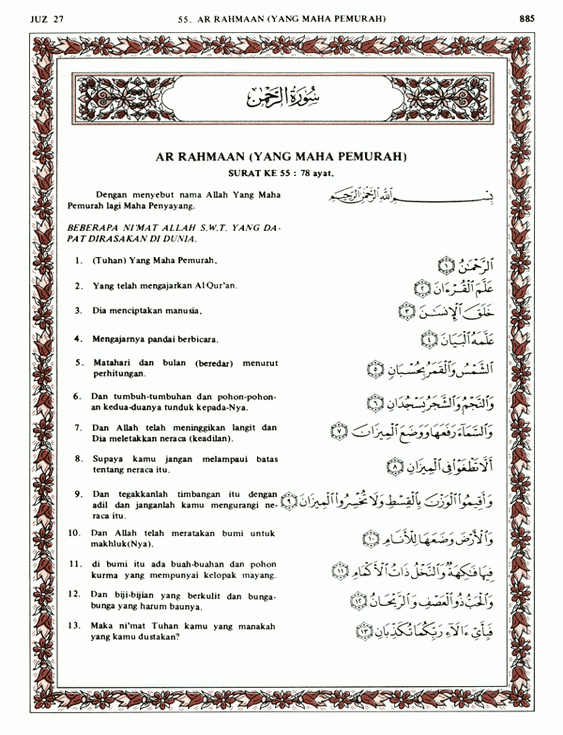 JUZ 27 55. AR RAHMAAN (YANG MAHA PEMURAH) 885
سُورَةُ الرَّحْمٰن
AR RAHMAAN (YANG MAHA PEMURAH)
SURAT KE 55 : 78 ayat.
Dengan menyebut nama Allah Yang Maha
Pemurah lagi Maha Penyayang.
بِسْمِ اللَّهِ الرَّحْمَٰنِ الرَّحِيمِ
BEBERAPA NI'MAT ALLAH S.W.T. YANG DA-
PAT DIRASAKAN DI DUNIA.
1. (Tuhan) Yang Maha Pemurah,
الرَّحْمَٰنُ ١
2. Yang telah mengajarkan Al Qur'an.
عَلَّمَ الْقُرْءَانَ ٢
3. Dia menciptakan manusia,
خَلَقَ الْإِنسَٰنَ ٣
4. Mengajarnya pandai berbicara.
عَلَّمَهُ الْبَيَانَ ٤
5. Matahari dan bulan (beredar) menurut
perhitungan.
الشَّمْسُ وَالْقَمَرُ بِحُسْبَانٍ ٥
6. Dan tumbuh-tumbuhan dan pohon-pohon-
an kedua-duanya tunduk kepada-Nya.
وَالنَّجْمُ وَالشَّجَرُ يَسْجُدَانِ ٦
7. Dan Allah telah meninggikan langit dan
Dia meletakkan neraca (keadilan).
وَالسَّمَاءَ رَفَعَهَا وَوَضَعَ الْمِيزَانَ ٧
8. Supaya kamu jangan melampaui batas
tentang neraca itu.
أَلَّا تَطْغَوْا فِي الْمِيزَانِ ٨
9. Dan tegakkanlah timbangan itu dengan
adil dan janganlah kamu mengurangi ne-
raca itu.
وَأَقِيمُوا الْوَزْنَ بِالْقِسْطِ وَلَا تُخْسِرُوا الْمِيزَانَ ٩
10. Dan Allah telah meratakan bumi untuk
makhluk(Nya).
وَالْأَرْضَ وَضَعَهَا لِلْأَنَامِ ١٠
11. di bumi itu ada buah-buahan dan pohon
kurma yang mempunyai kelopak mayang.
فِيهَا فَٰكِهَةٌ وَالنَّخْلُ ذَاتُ الْأَكْمَامِ ١١
12. Dan biji-bijian yang berkulit dan bunga-
bunga yang harum baunya.
وَالْحَبُّ ذُو الْعَصْفِ وَالرَّيْحَانُ ١٢
13. Maka ni'mat Tuhan kamu yang manakah
yang kamu dustakan?
فَبِأَيِّ ءَالَاءِ رَبِّكُمَا تُكَذِّبَانِ ١٣